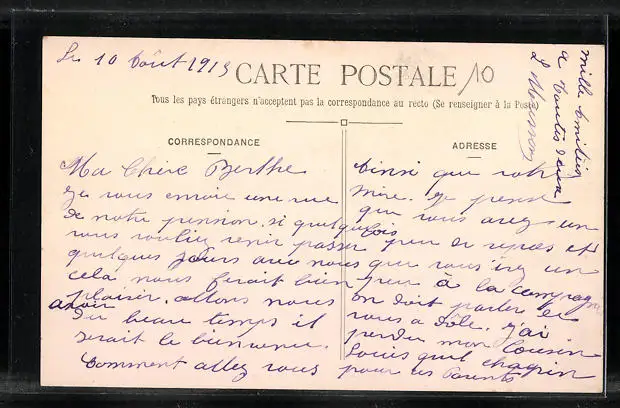 Le 10 Août 1913
CARTE POSTALE
10
Tous les pays étrangers n'acceptent pas la correspondance au recto (Se renseigner à la Poste)
CORRESPONDANCE
Ma Chère Berthe
Je vous envoie une vue
de notre pension. si quelquefois
vous vouliez venir passer
quelques jours avec nous
cela nous ferait bien
plaisir. allons nous
avoir
du beau temps il
serait le bienvenu.
Comment allez vous
ADRESSE
Ainsi que votre
mère. Je pense
que vous avez un
peu de repos et
que vous irez un
peu à la campagne
on doit parler de
vous a Dôle. j'ai
perdu mon Cousin
Louis quel chagrin
pour ces Parents
mille amitiés
a toutes deux
L